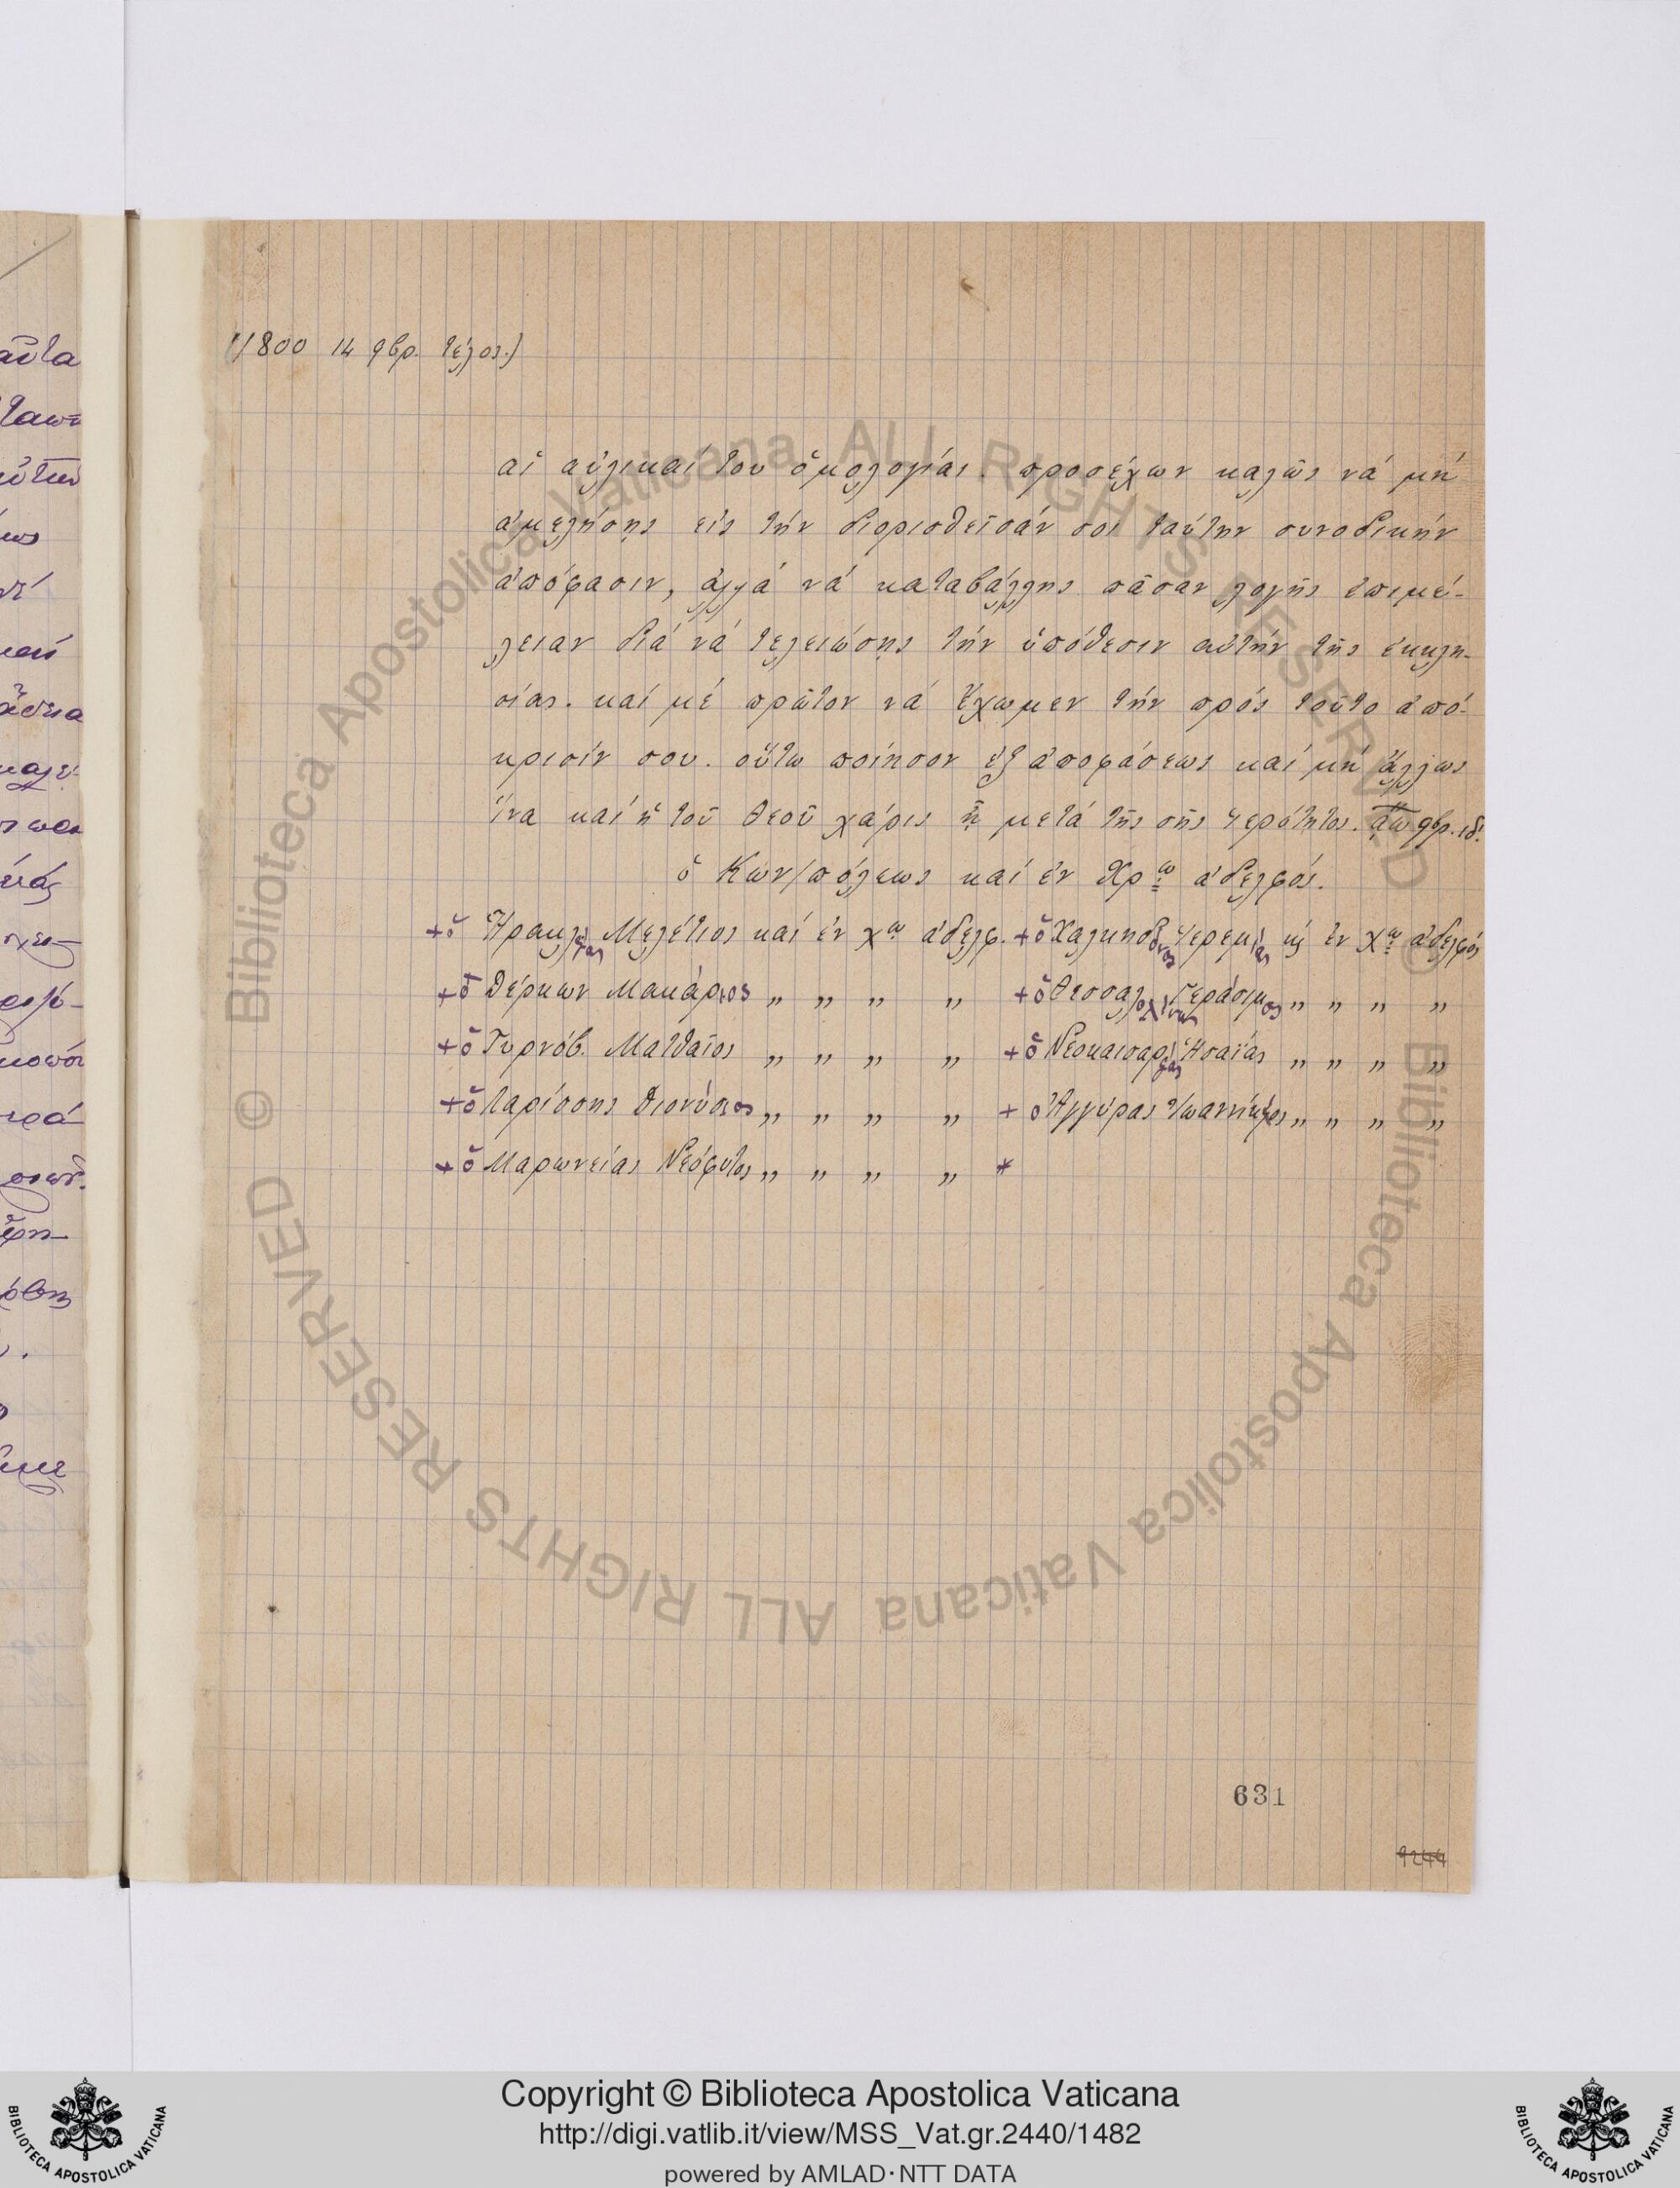 (1800 14 9βρ. τέλος.)
αἱ αὐλικαί του ὁμολογίαι. προσέχων καλῶς νά μή
ἀμελήσῃς εἰς τήν διορισθεῖσάν σοι ταύτην συνοδικήν
ἀπόφασιν, ἀλλά νά καταβάλλῃς πᾶσαν λογῆς ἐπιμέ-
λειαν διά νά τελειώσῃς τήν ὑπόθεσιν αὐτήν τῆς ἐκκλη-
σίας. καί μέ πρῶτον νά ἔχωμεν τήν πρός τοῦτο ἀπό-
κρισίν σου. οὕτω ποίησον ἐξ ἀποφάσεως καί μή ἄλλως
ἵνα καί ἡ τοῦ Θεοῦ χάρις ᾖ μετά τῆς σῆς ἱερότητος. ͵αω 9βρ. ιδ.
ὁ Κων/πόλεως καί ἐν Χρῷ ἀδελφός.
+ ὁ Ἡρακλείας Μελέτιος καί ἐν χῷ ἀδελφ. + ὁ Χαλκηδόνος Ἱερεμίας κ ἐν χῷ ἀδελφός
+ ὁ Δέρκων Μακάριος „ „ „ „ + ὁ Θεσσαλονίκης Γεράσιμος „ „ „ „
+ ὁ Τυρνόβ. Ματθαῖος „ „ „ „ + ὁ Νεοκαισαρείας Ἡσαΐας „ „ „ „
+ ὁ Λαρίσσης Διονύσιος „ „ „ „ + ὁ Ἀγκύρας Ἰωαννίκιος „ „ „ „
+ ὁ Μαρωνείας Νεόφυτος „ „ „ „ +
631
9244
Copyright © Biblioteca Apostolica Vaticana
http://digi.vatlib.it/view/MSS_Vat.gr.2440/1482
powered by AMLAD·NTT DATA
BIBLIOTECA APOSTOLICA VATICANA
BIBLIOTECA APOSTOLICA VATICANA
© Biblioteca Apostolica Vaticana ALL RIGHTS RESERVED
© Biblioteca Apostolica Vaticana ALL RIGHTS RESERVED